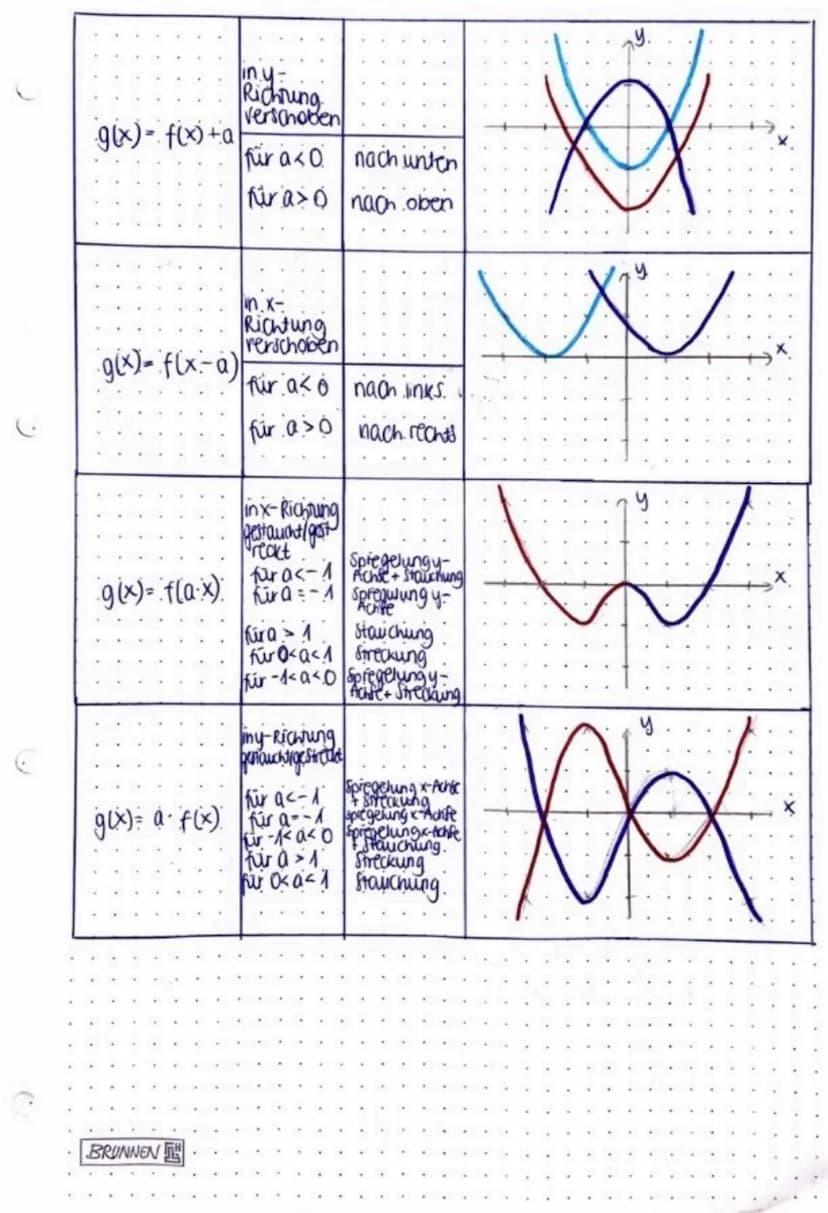 g(x)= f(x)+a
in y-
Richtung
verschoben
für a<0 nach unten
für a>0 nach oben
y
x
g(x)= f(x-a)
in x-
Richtung
verschoben
für a<0 nach links
für a>0 nach rechts
y
x
g(x)= f(a·x)
in x-Richtung
gestaucht/gest
reckt
für a<-1 Spiegelung y-
Achse + Stauchung
für a=-1 Spiegelung y-
Achse
für a > 1 Stauchung
für 0<a<1 Streckung
für -1<a<0 Spiegelung y-
Achse + Streckung
y
x
g(x)= a· f(x)
in y-Richtung
gestaucht/gestreckt
für a<-1 Spiegelung x-Achse
+ Streckung
für a=-1 Spiegelung x-Achse
für -1<a<0 Spiegelung x-Achse
+ Stauchung
für a>1 Streckung
für 0<a<1 Stauchung
y
x
BRUNNEN